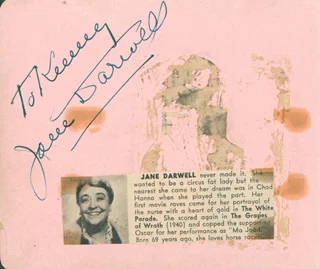 To Kenny
Jane Darwell
JANE DARWELL never made it. She
wanted to be a circus fat lady but the
nearest she came to her dream was in Chad
Hanna when she played the part. Her
first movie raves came for her portrayal of
the nurse with a heart of gold in The White
Parade. She scored again in The Grapes
of Wrath (1940) and copped the supporting
Oscar for her performance as "Ma Joad."
Born 69 years ago, she loves horse racing